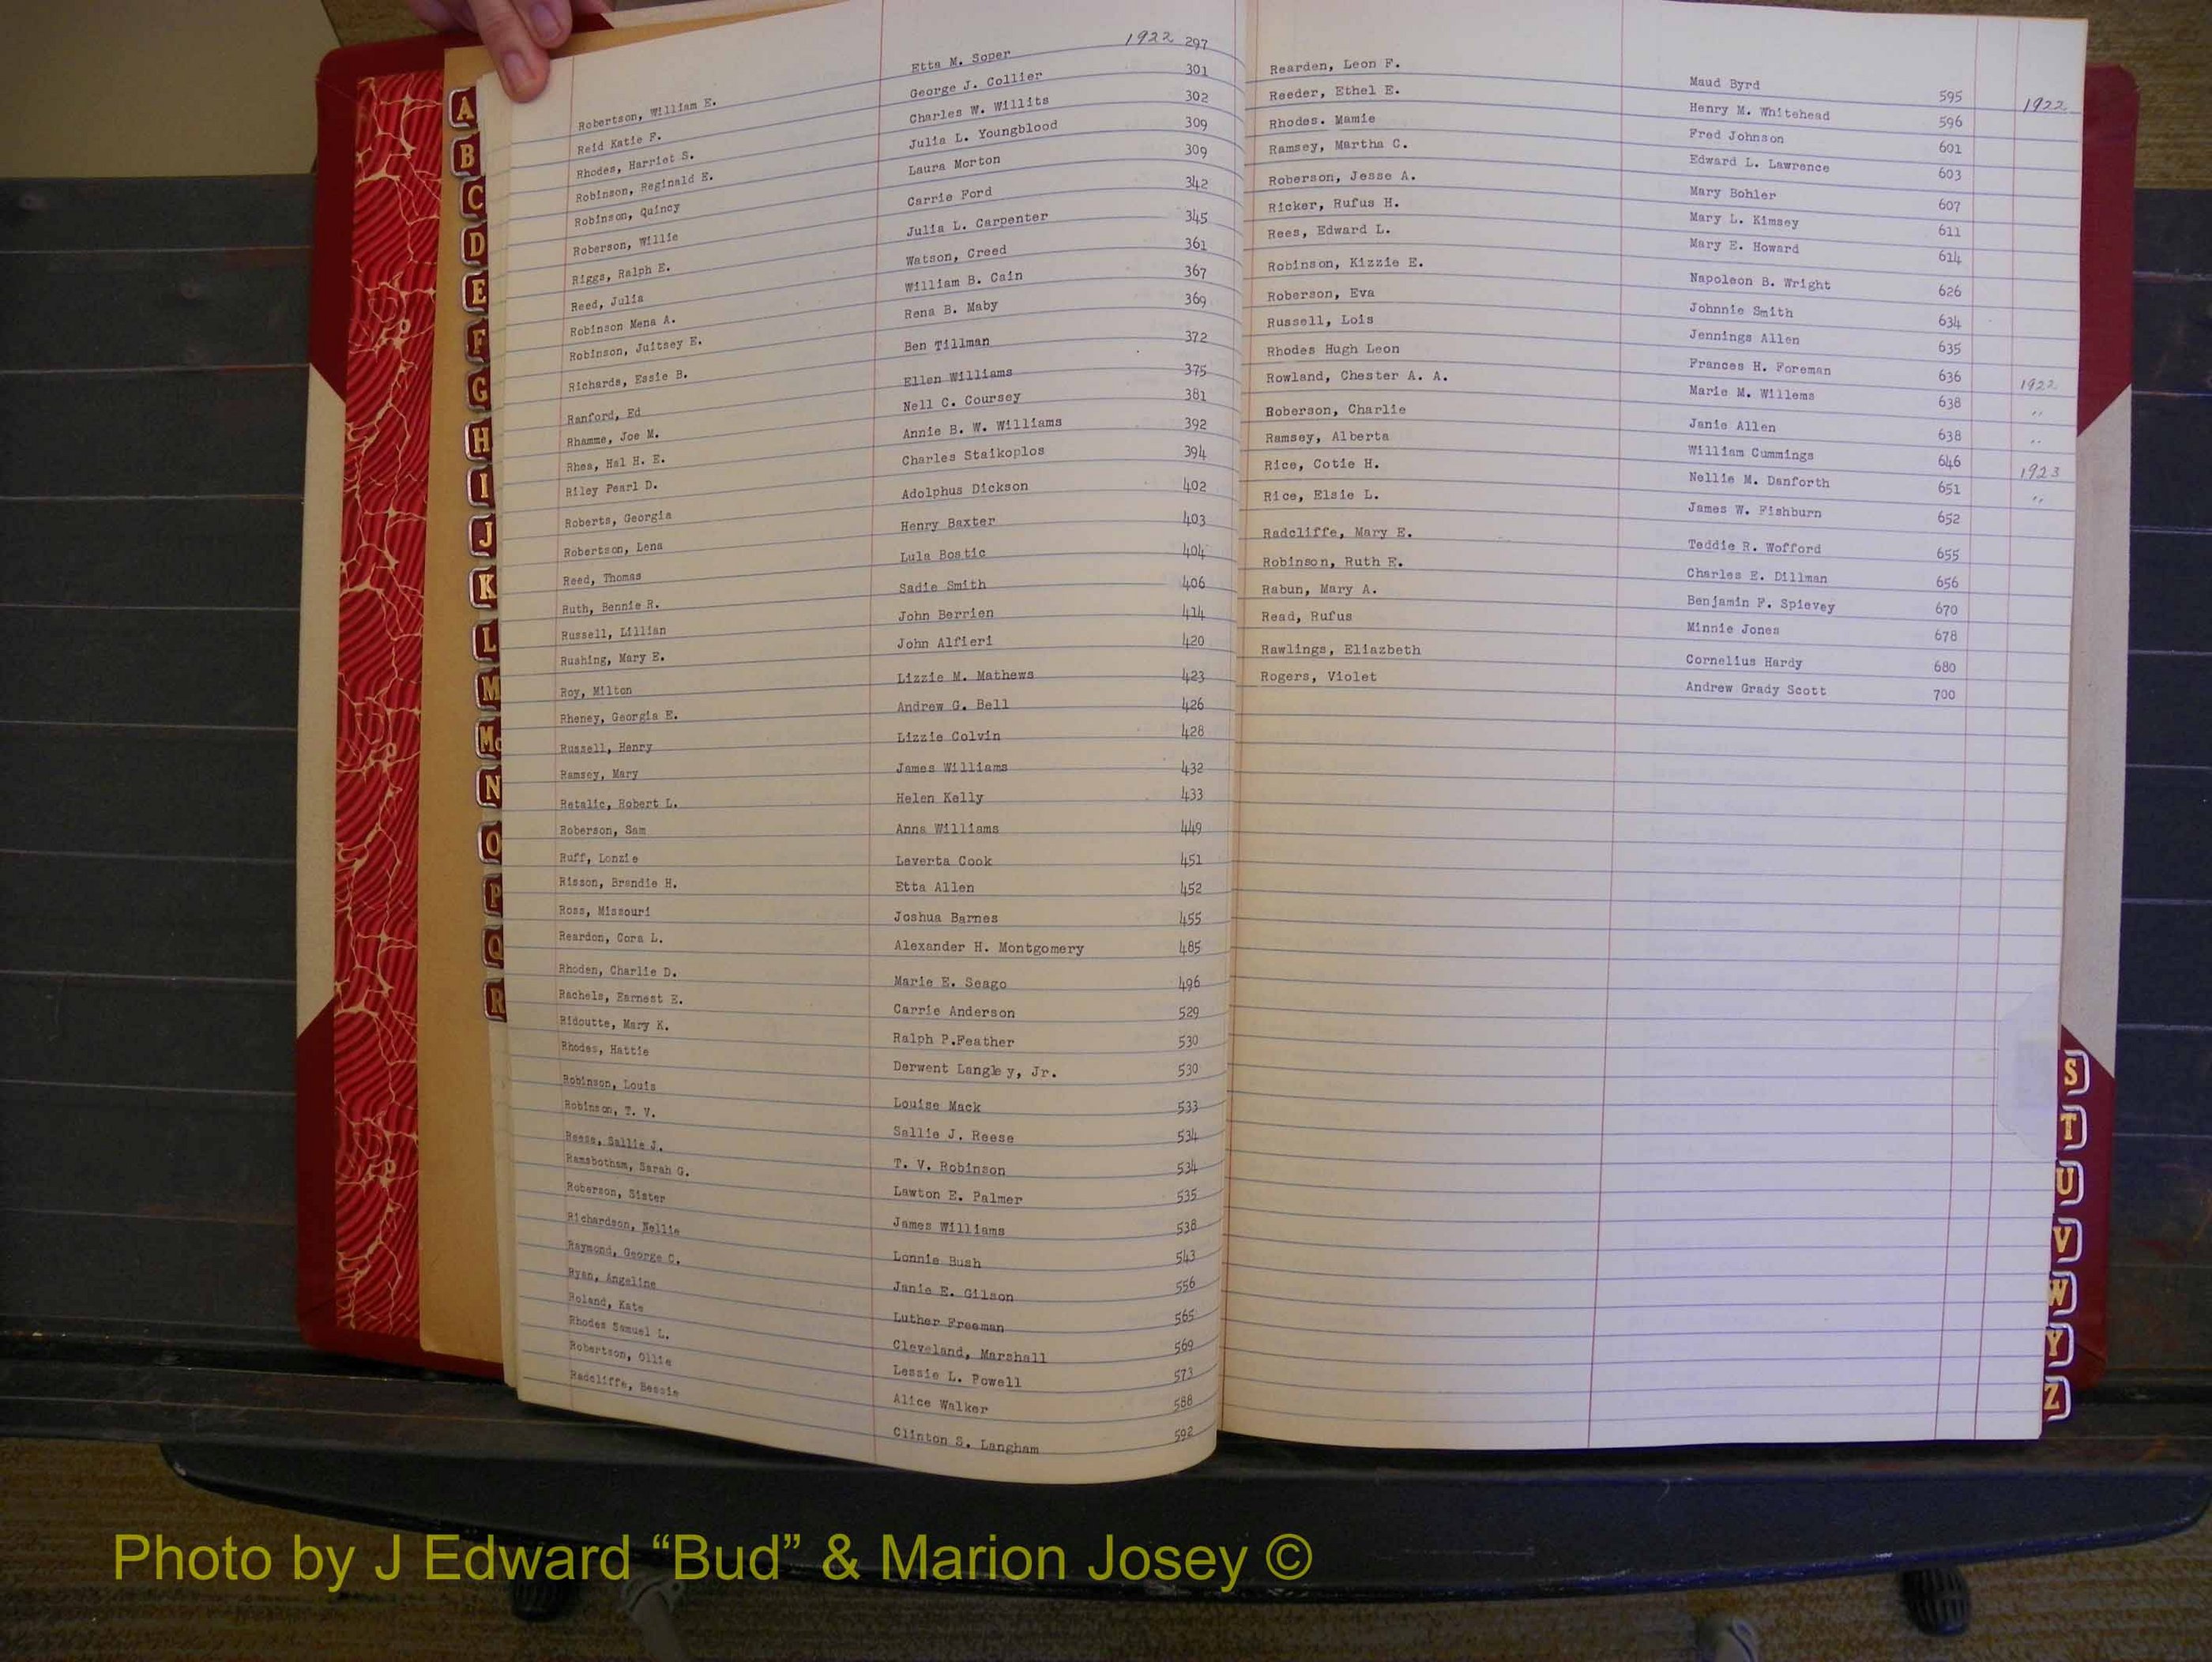 1922
Robertson, William E. Etta M. Soper 297
Reid Katie F. George J. Collier 301
Rhodes, Harriet S. Charles W. Willits 302
Robinson, Reginald E. Julia L. Youngblood 309
Robinson, Quincy Laura Morton 309
Roberson, Willie Carrie Ford 342
Riggs, Ralph E. Julia L. Carpenter 345
Reed, Julia Watson, Creed 361
Robinson Mena A. William B. Cain 367
Robinson, Juitsey E. Rena B. Maby 369
Richards, Essie B. Ben Tillman 372
Ranford, Ed Ellen Williams 375
Rhamme, Joe M. Nell C. Coursey 381
Rhea, Hal H. E. Annie B. W. Williams 392
Riley Pearl D. Charles Staikoplos 394
Roberts, Georgia Adolphus Dickson 402
Robertson, Lena Henry Baxter 403
Reed, Thomas Lula Bostic 404
Ruth, Bennie R. Sadie Smith 406
Russell, Lillian John Berrien 414
Rushing, Mary E. John Alfieri 420
Roy, Milton Lizzie M. Mathews 423
Rheney, Georgia E. Andrew G. Bell 426
Russell, Henry Lizzie Colvin 428
Ramsey, Mary James Williams 432
Retalic, Robert L. Helen Kelly 433
Roberson, Sam Anna Williams 449
Ruff, Lonzie Leverta Cook 451
Risson, Brandie H. Etta Allen 452
Ross, Missouri Joshua Barnes 455
Reardon, Cora L. Alexander H. Montgomery 485
Rhoden, Charlie D. Marie E. Seago 496
Rachels, Earnest E. Carrie Anderson 529
Ridoutte, Mary K. Ralph P.Feather 530
Rhodes, Hattie Derwent Langley, Jr. 530
Robinson, Louis Louise Mack 533
Robinson, T. V. Sallie J. Reese 534
Reese, Sallie J. T. V. Robinson 534
Ramsbotham, Sarah G. Lawton E. Palmer 535
Roberson, Sister James Williams 538
Richardson, Nellie Lonnie Bush 543
Raymond, George C. Janie E. Gilson 556
Ryan, Angeline Luther Freeman 565
Roland, Kate Cleveland, Marshall 569
Rhodes Samuel L. Lessie L. Powell 573
Robertson, Ollie Alice Walker 588
Radcliffe, Bessie Clinton S. Langham 592
Rearden, Leon F. Maud Byrd 595 1922
Reeder, Ethel E. Henry M. Whitehead 596
Rhodes. Mamie Fred Johnson 601
Ramsey, Martha C. Edward L. Lawrence 603
Roberson, Jesse A. Mary Bohler 607
Ricker, Rufus H. Mary L. Kimsey 611
Rees, Edward L. Mary E. Howard 614
Robinson, Kizzie E. Napoleon B. Wright 626
Roberson, Eva Johnnie Smith 634
Russell, Lois Jennings Allen 635
Rhodes Hugh Leon Frances H. Foreman 636 1922
Rowland, Chester A. A. Marie M. Willems 638 "
Roberson, Charlie Janie Allen 638 "
Ramsey, Alberta William Cummings 646 1923
Rice, Cotie H. Nellie M. Danforth 651 "
Rice, Elsie L. James W. Fishburn 652
Radcliffe, Mary E. Teddie R. Wofford 655
Robinson, Ruth E. Charles E. Dillman 656
Rabun, Mary A. Benjamin F. Spievey 670
Read, Rufus Minnie Jones 678
Rawlings, Eliazbeth Cornelius Hardy 680
Rogers, Violet Andrew Grady Scott 700
A
B
C
D
E
F
G
H
I
J
K
L
M
Mc
N
O
P
Q
R
S
T
U
V
W
Y
Z
Photo by J Edward “Bud” & Marion Josey ©